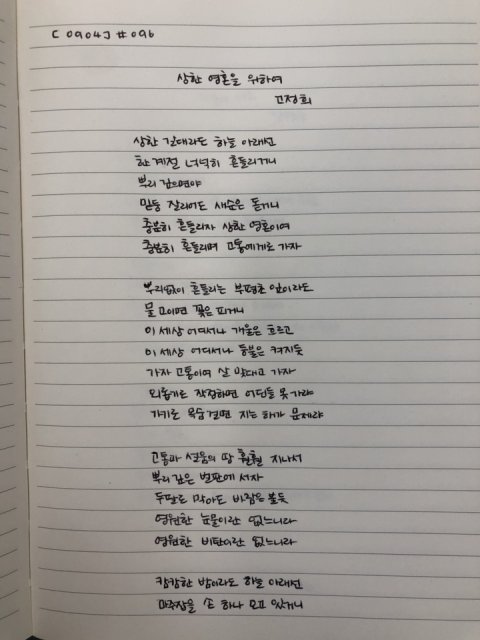 [0904] #096
상한 영혼을 위하여
고정희
상한 갈대라도 하늘 아래선
한 계절 넉넉히 흔들리거니
뿌리 깊으면야
밑둥 잘리어도 새순은 돋거니
충분히 흔들리자 상한 영혼이여
충분히 흔들리며 고통에게로 가자
뿌리없이 흔들리는 부평초 잎이라도
물 고이면 꽃은 피거니
이 세상 어디서나 개울은 흐르고
이 세상 어디서나 등불은 켜지듯
가자 고통이여 살 맞대고 가자
외롭기로 작정하면 어딘들 못 가랴
가기로 목숨 걸면 지는 해가 문제랴
고통과 설움의 땅 훨훨 지나서
뿌리 깊은 벌판에 서자
두 팔로 막아도 바람은 불듯
영원한 눈물이란 없느니라
영원한 비탄이란 없느니라
캄캄한 밤이라도 하늘 아래선
마주잡을 손 하나 오고 있거니